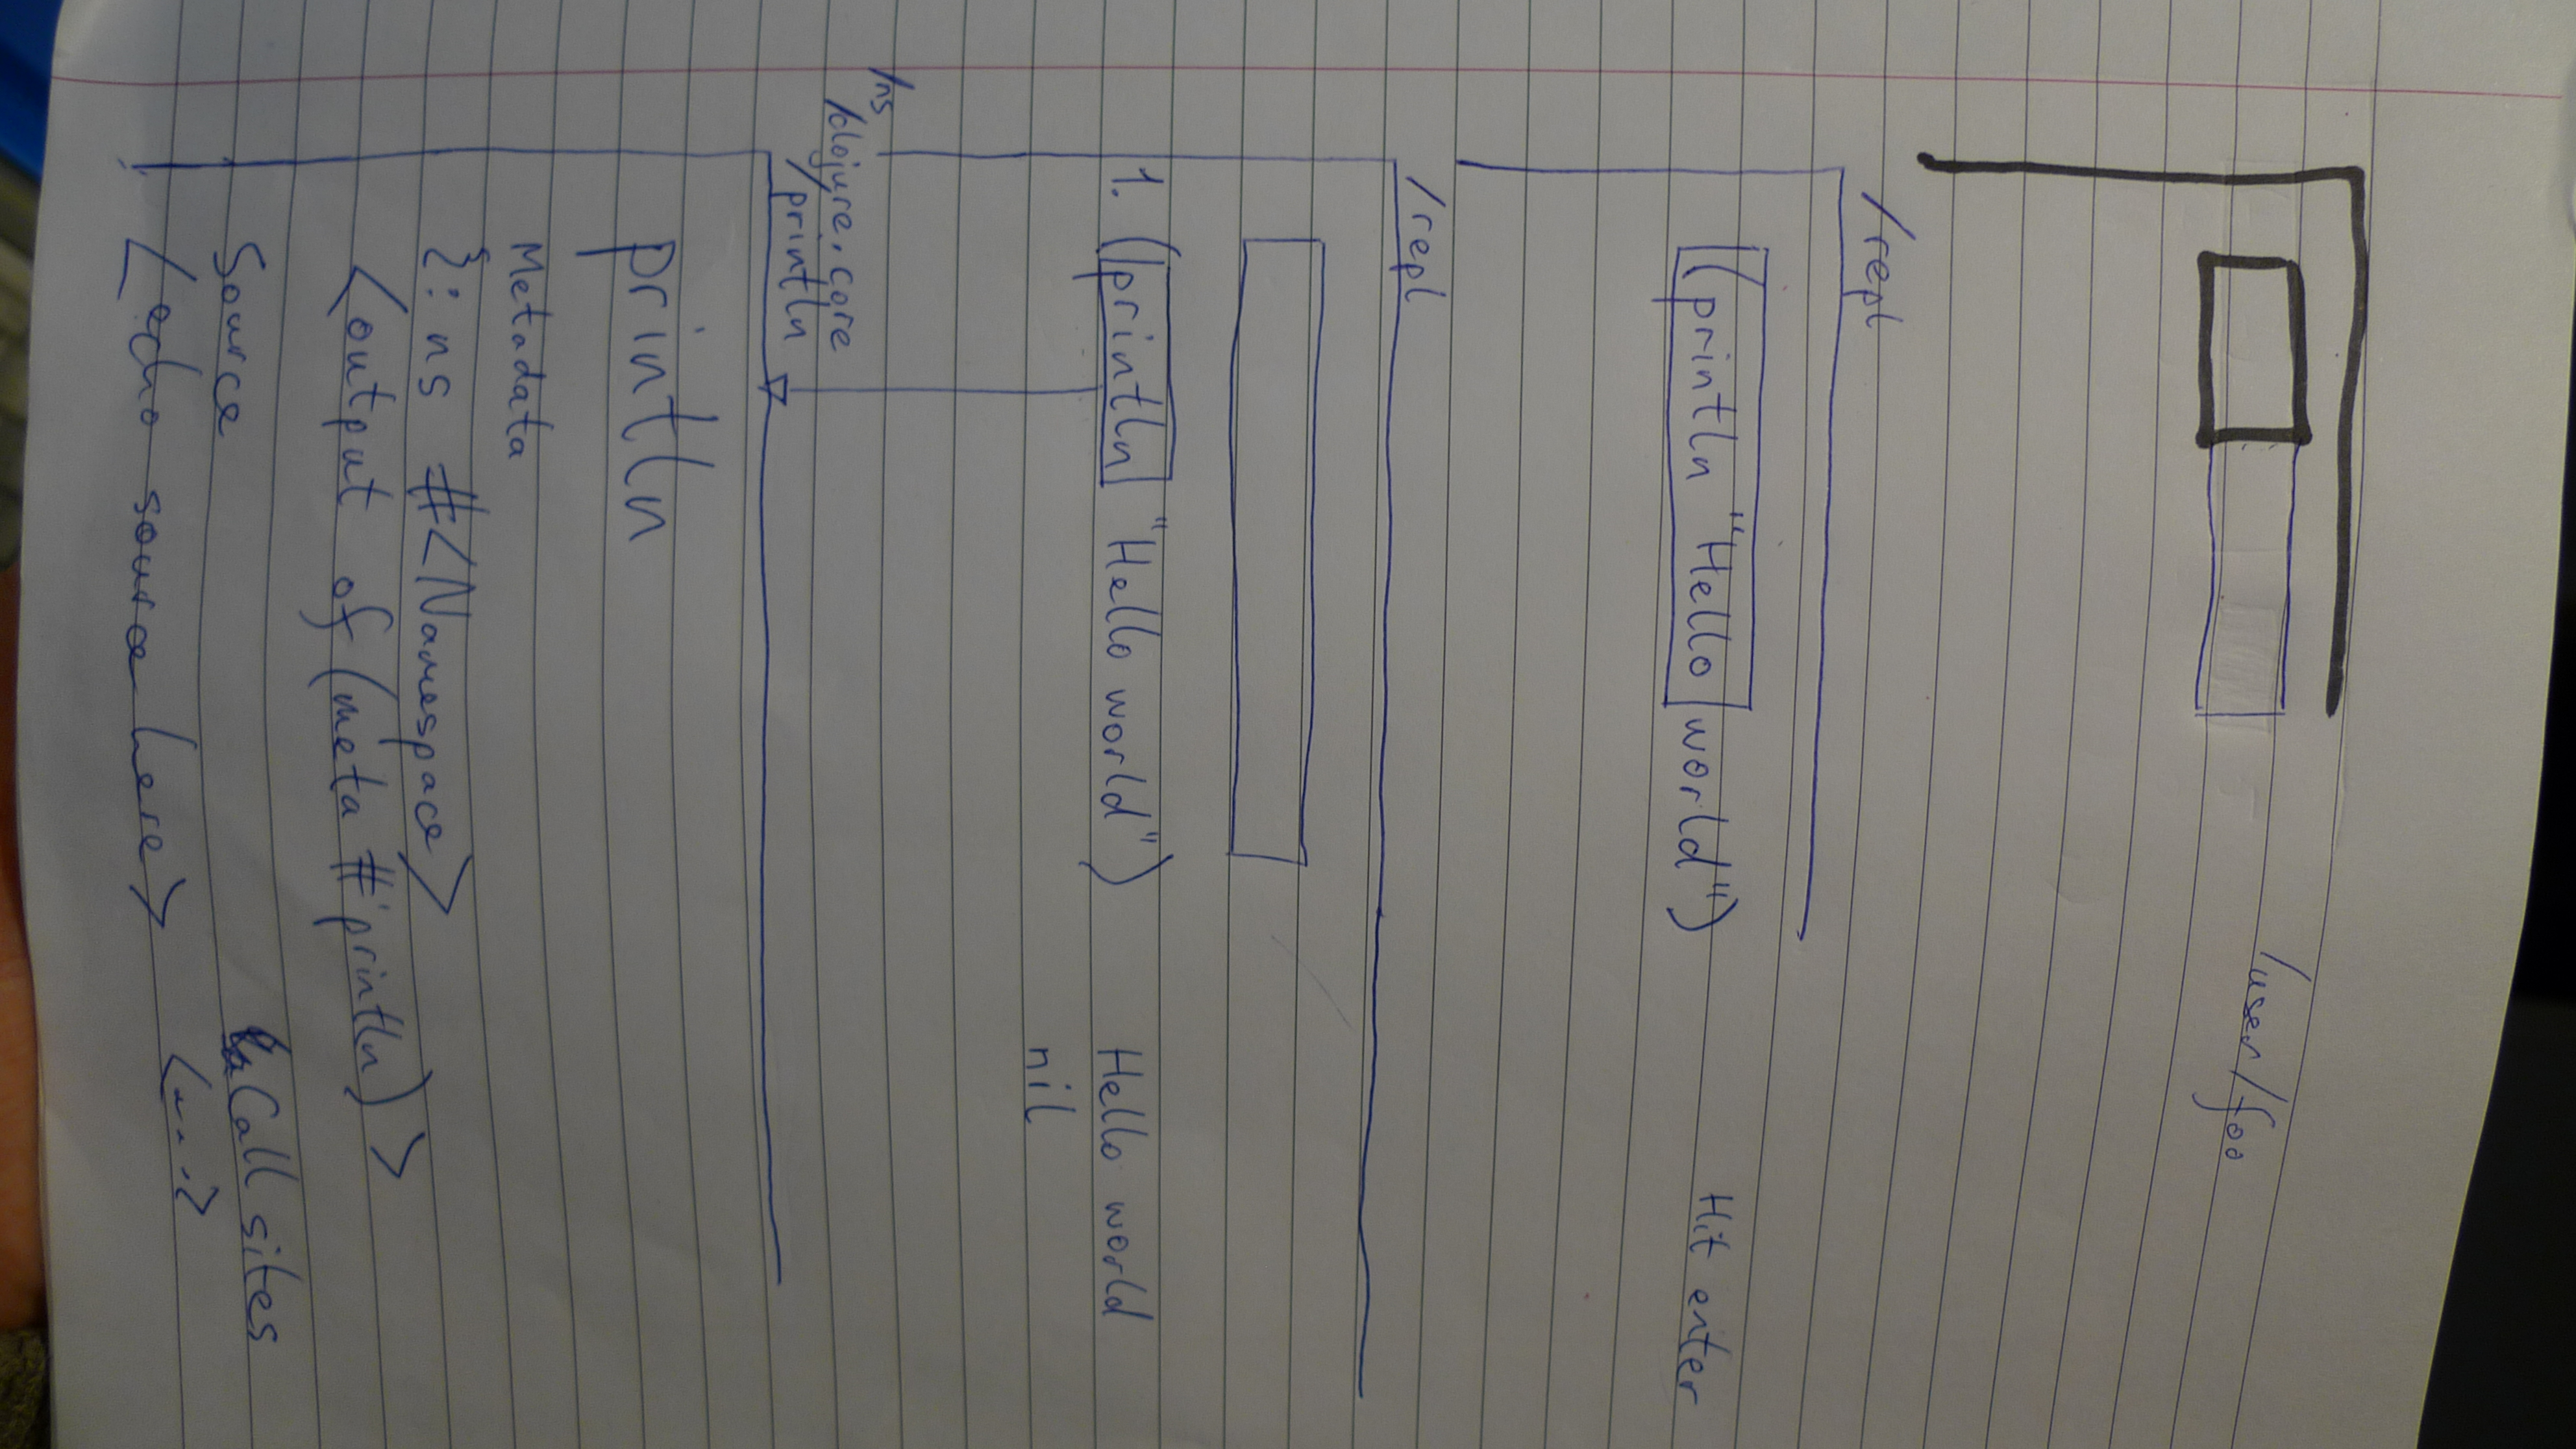 /user/foo
/repl
(println "Hello world") Hit enter
/repl
1. (println "Hello world") Hello world
nil
/ns
/clojure.core
/println
println
Metadata
{:ns #<Namespace>
<output of (meta #'println)>
Source Call sites
<echo source here> <...>